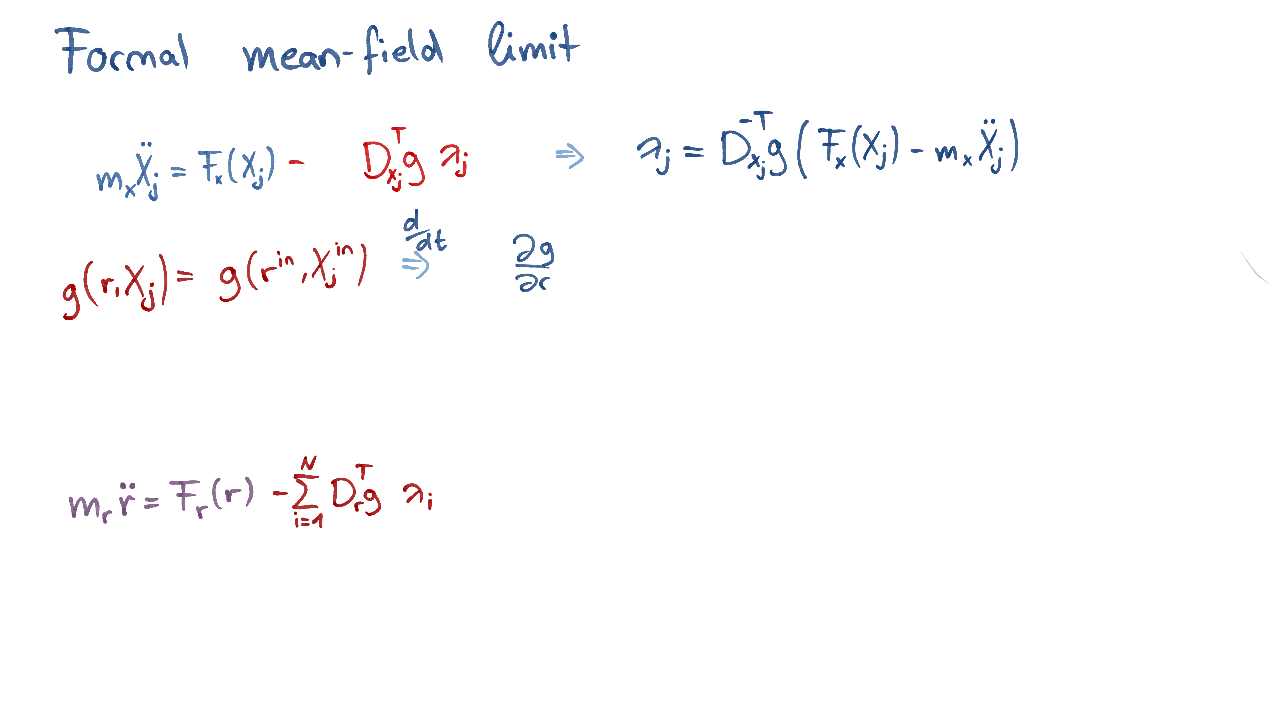 Formal mean-field limit
m_x Ẍ_j = F_x(X_j) - D_{x_j}^T g λ_j ⇒ λ_j = D_{x_j}^{-T} g (F_x(X_j) - m_x Ẍ_j)
g(r, X_j) = g(r^{in}, X_j^{in}) d/dt ⇒ ∂g/∂r
m_r r̈ = F_r(r) - ∑_{i=1}^N D_r^T g λ_i